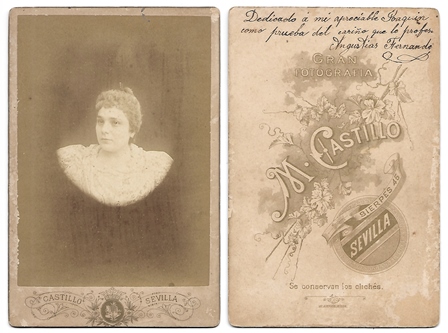 CASTILLO SEVILLA
Dedicado á mi apreciable Joaquin
como prueba del cariño que le profesa
Angustias Fernande
GRAN
FOTOGRAFIA
M. CASTILLO
SIERPES 45
SEVILLA
Se conservan los clichés.